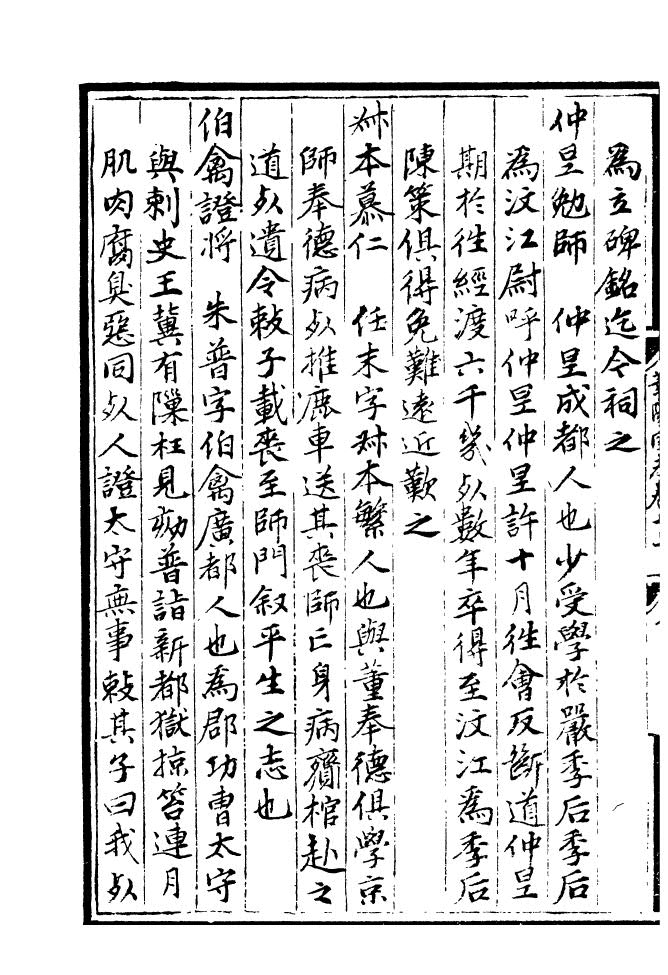 為立碑銘迄今祠之
仲呈勉師　仲呈成都人也少受學於嚴季后季后
為汶江尉呼仲呈仲呈許十月徃會反斷道仲呈
期於徃經渡六千幾死數年卒得至汶江為季后
陳策俱得免難遠近歎之
叔本慕仁　任末字叔本繁人也與董奉德俱學京
師奉德病死推鹿車送其喪師亡身病齎棺赴之
道死遺令敕子載喪至師門叙平生之志也
伯禽證將　朱普字伯禽廣都人也為郡功曹太守
與刺史王冀有隟枉見劾普詣新都獄掠笞連月
肌肉腐臭惡同死人證太守無事敕其子曰我死